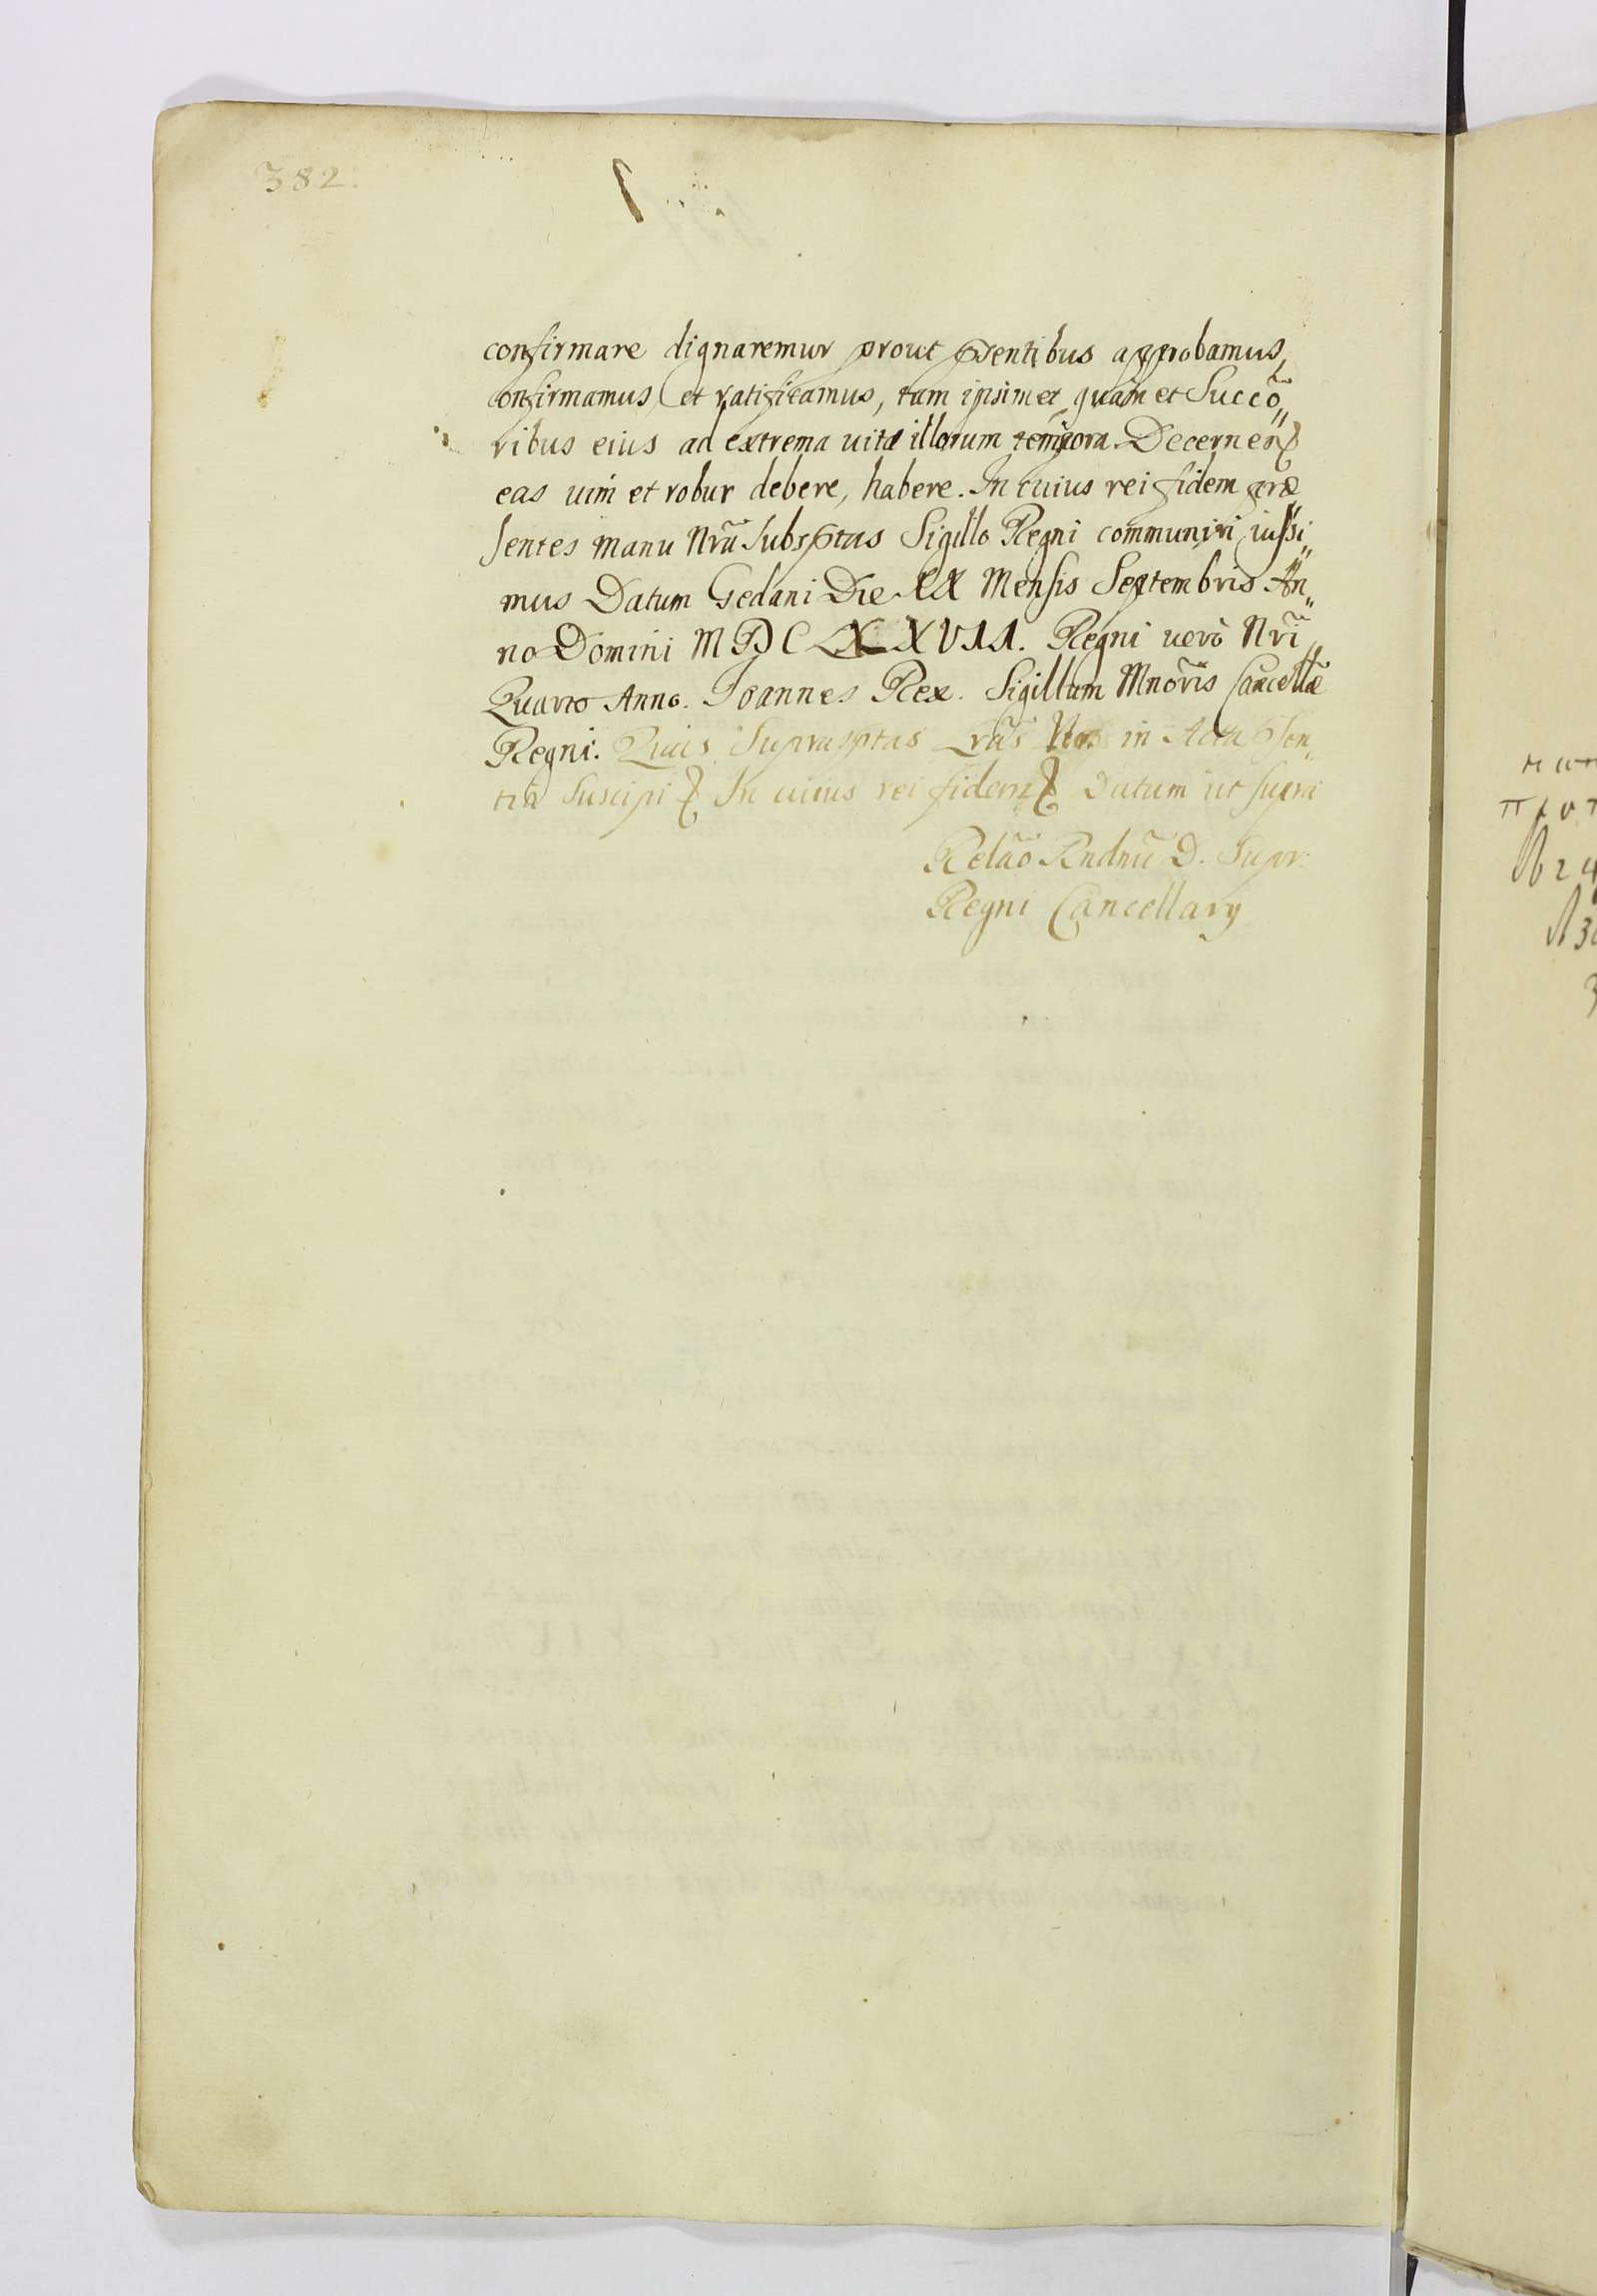 382.
confirmare dignaremur prout pñtibus approbamus,
confirmamus, et ratificamus, tam ipsimet quam et Succõ„
ribus eius ad extrema uitæ illorum tempora. Decernen̄
eas uim et robur debere, habere. In cuius rei fidem præ
sentes manu Nrã Subsptas Sigillo Regni communiri iussi„
mus Datum Gedani Die XX Mensis Septembris An„
no Domini MDCLXXVII. Regni uero Nrĩ
Quarto Anno. Joannes Rex. Sigillum Mnõris Cancellæ
Regni. Quas Suprasptas Lrãs in Acta pñsen„
tia Suscipi In cuius rei fidem Datum ut supra
Relão Rndmĩ D. Supr:
Regni Cancellary